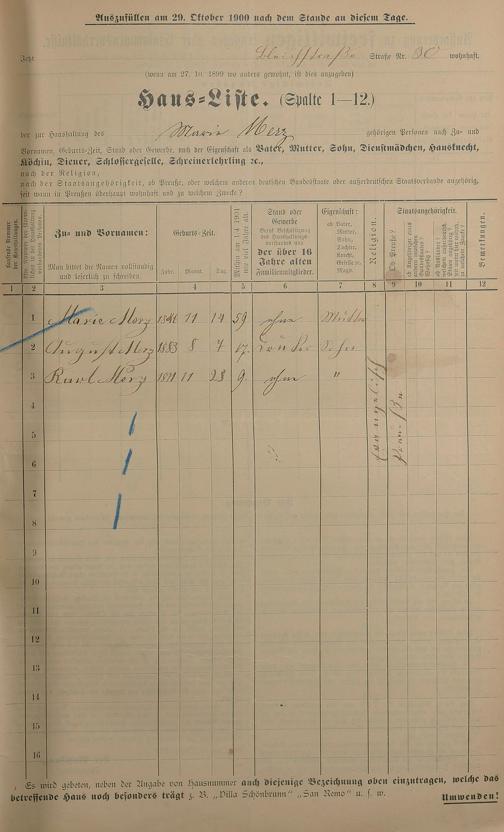 Auszufüllen am 29. Oktober 1900 nach dem Stande an diesem Tage.
Jetzt Bleichstraße Straße Nr. 30 wohnhaft.
(wenn am 27. 10. 1899 wo anders gewohnt, ist dies anzugeben)
Haus=Liste. (Spalte 1—12.)
der zur Haushaltung des Marie Merz gehörigen Personen nach Zu- und
Vornamen, Geburts-Zeit, Stand oder Gewerbe, nach der Eigenschaft als Vater, Mutter, Sohn, Dienstmädchen, Hausknecht,
Köchin, Diener, Schlossergeselle, Schreinerlehrling ꝛc.,
nach der Religion,
nach der Staatsangehörigkeit, ob Preuße, oder welchem anderen deutschen Bundesstaate oder außerdeutschen Staatsverbande angehörig,
seit wann in Preußen überhaupt wohnhaft und zu welchem Zwecke?
Zu- und Vornamen:
Man bittet die Namen vollständig
und leserlich zu schreiben.
Geburts-Zeit.
Jahr. Monat. Tag.
Stand oder
Gewerbe
der über 16
Jahre alten
Familienmitglieder.
Eigenschaft:
ob Vater,
Mutter,
Sohn,
Tochter,
Knecht,
Geselle ꝛc.
Magd.
Religion.
Staatsangehörigkeit.
Ob Preuße?
Bemerkungen.
1 2 3 4 5 6 7 8 9 10 11 12
1 Marie Merz 11 14 59 ohne Mutter
2 August Merz 1883 8 7 17. Sohn
3 Karl Merz 1891 11 28 9. ohne "
evangelisch
4
5
6
7
8
9
10
11
12
13
14
15
16
Es wird gebeten, neben der Angabe von Hausnummer auch diejenige Bezeichnung oben einzutragen, welche das
betreffende Haus noch besonders trägt z. B. „Villa Schönbrunn" „San Remo" u. s. w.
Umwenden!